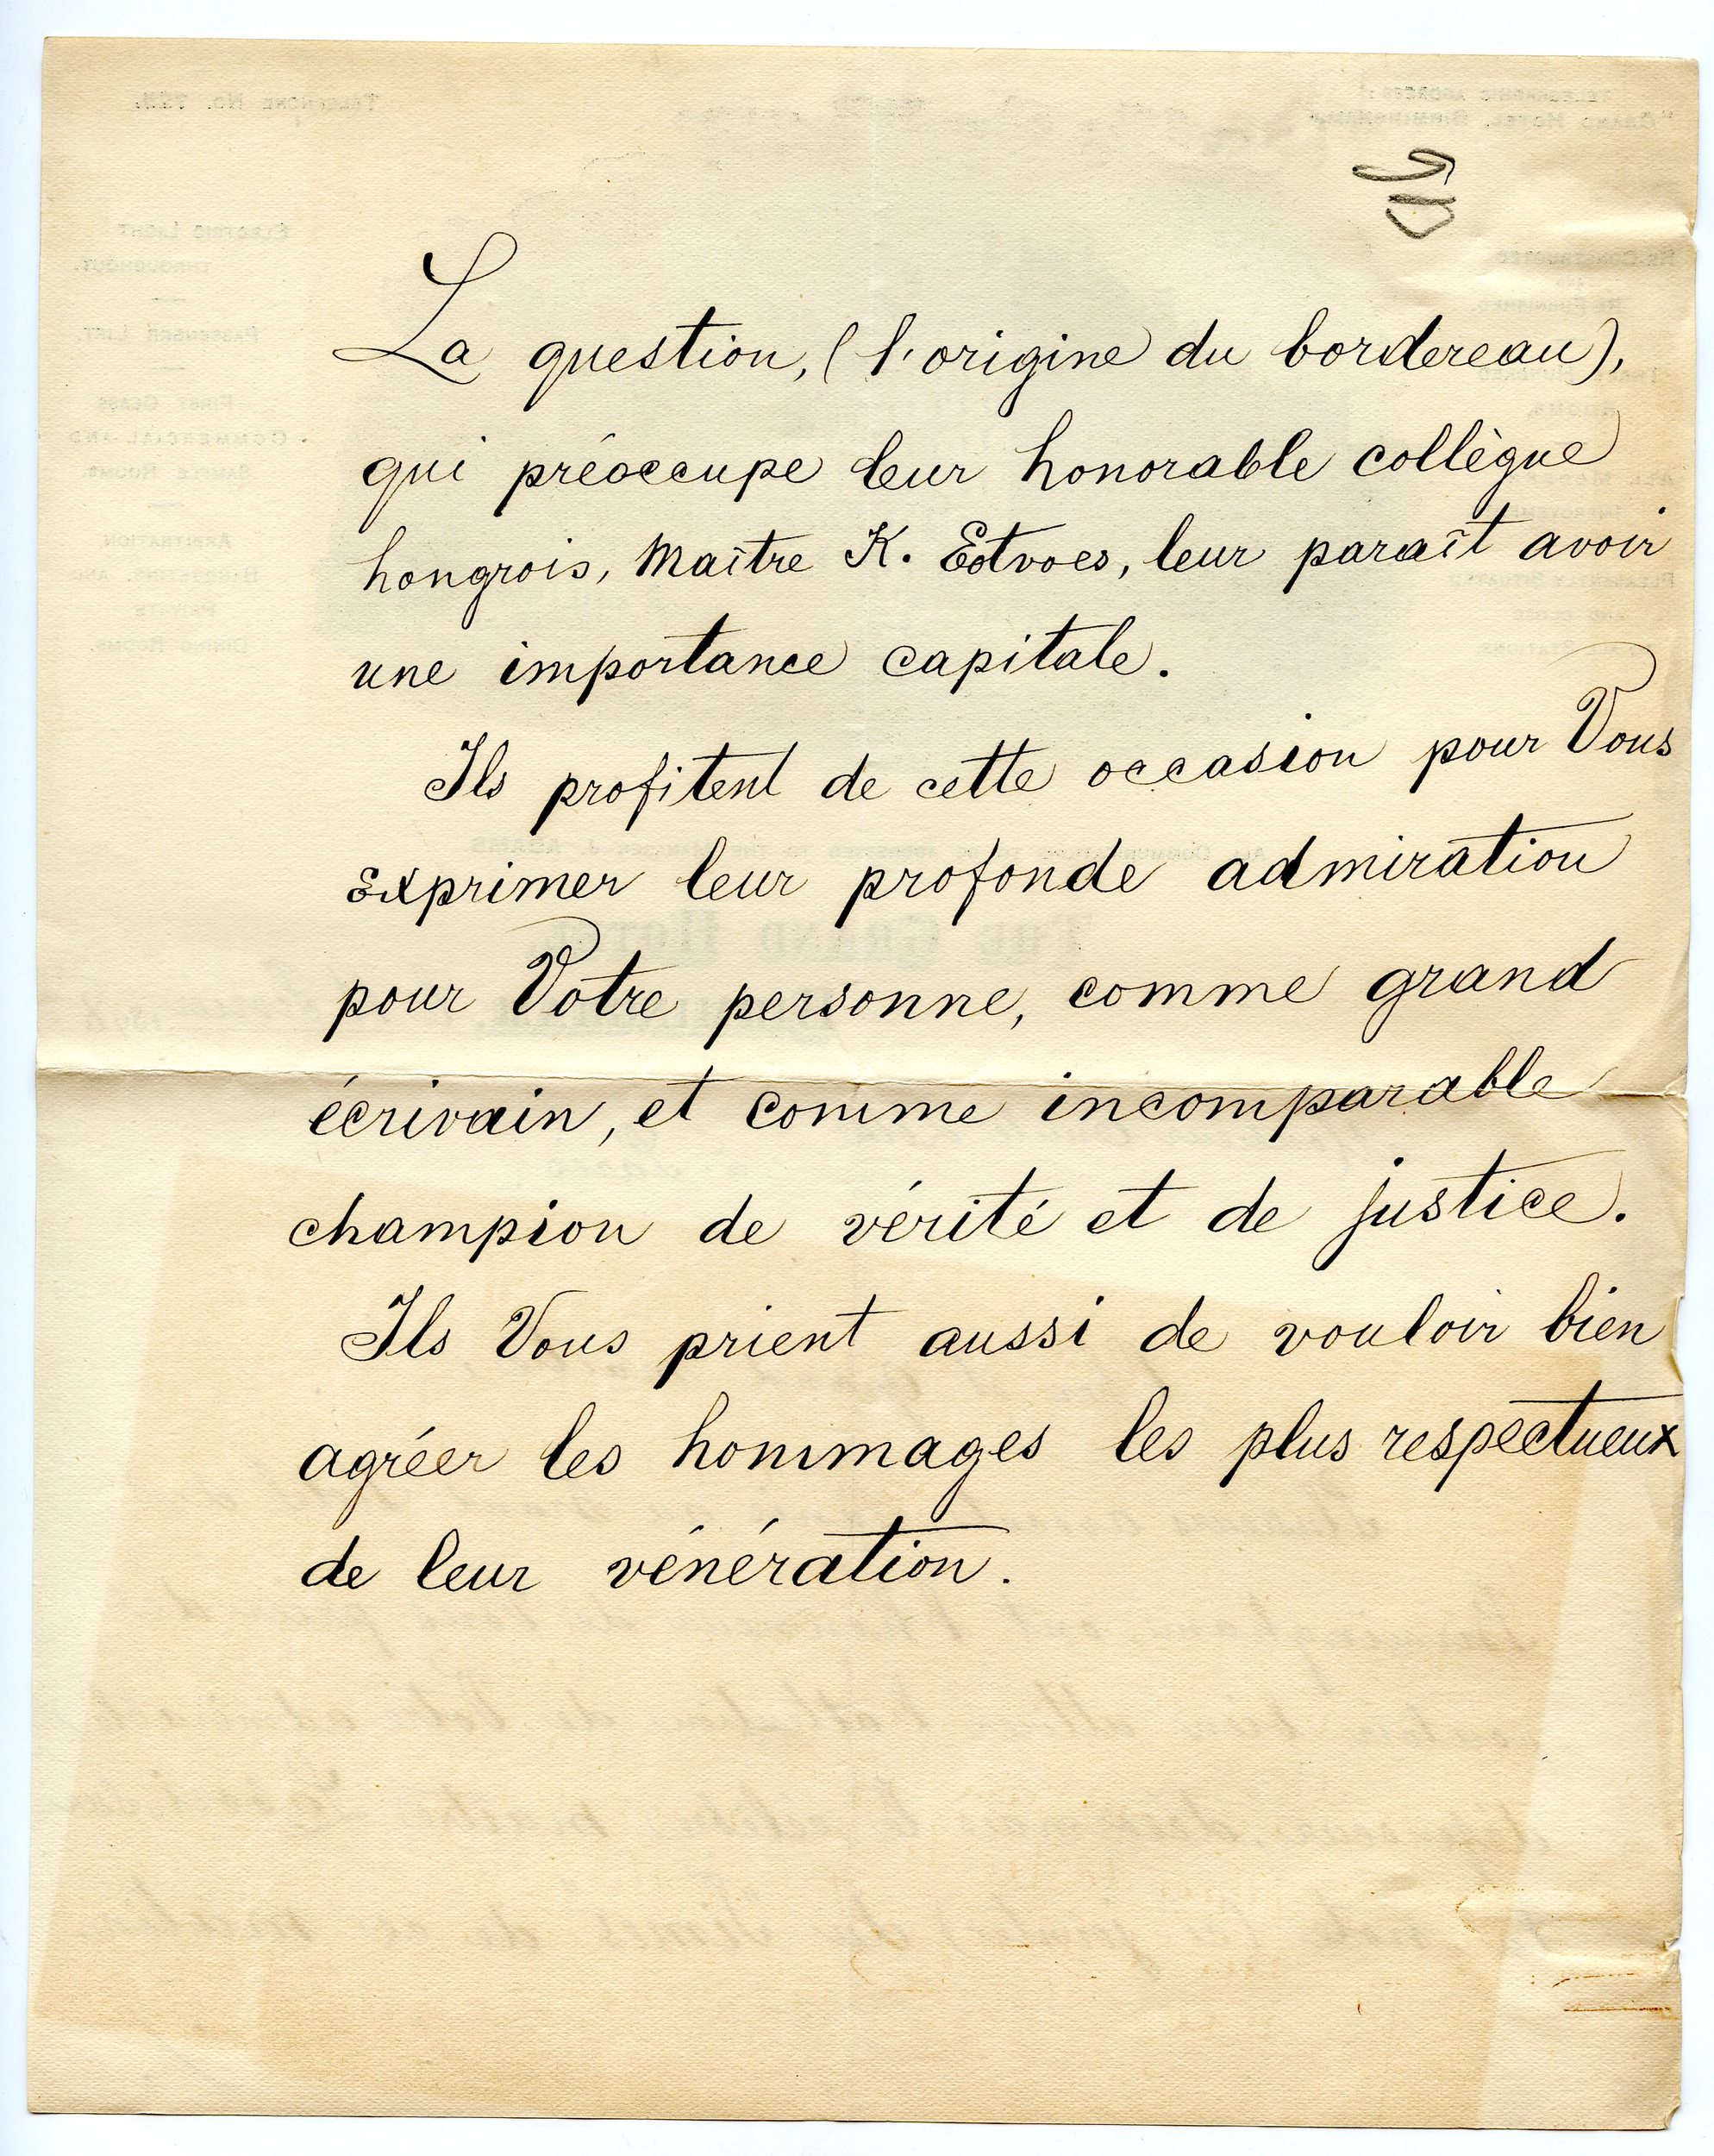 La question, (l'origine du bordereau),
qui préoccupe leur honorable collègue
hongrois, Maître K. Eotvoes, leur paraît avoir
une importance capitale.
Ils profitent de cette occasion pour Vous
exprimer leur profonde admiration
pour Votre personne, comme grand
écrivain, et comme incomparable
champion de vérité et de justice.
Ils Vous prient aussi de vouloir bien
agréer les hommages les plus respectueux
de leur vénération.